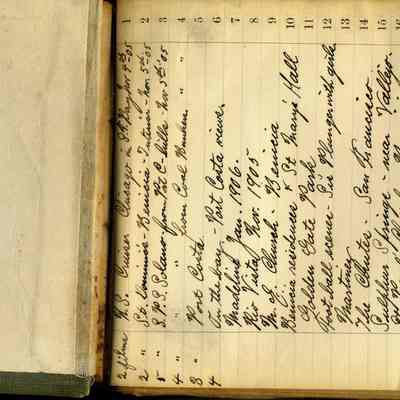 1 2 films U.S. Cruiser Chicago in S.F. Bay Nov 9th-05
2 2 " So. Vernnie - Benicia - Tintern - Nov. 5th-05
3 5 " S.W.S. Solano from Pt C-ville Nov 5th-05
4 4 " " " from Coal Bunkers. "
5 8 " Port Costa
6 4 In the bay - Port Costa view.
7 Madeline Jan. 1906.
8 Rio Vista, Nov. 1905.
9 M.E. Church - Benicia
10 Benicia residence & St. Mary's Hall
11 Golden Gate Park
12 Foot ball scene - Six Plunger with girls
13 Martinez
14 The Chutes - San Francisco
15 Sulphur Springs - near Vallejo.